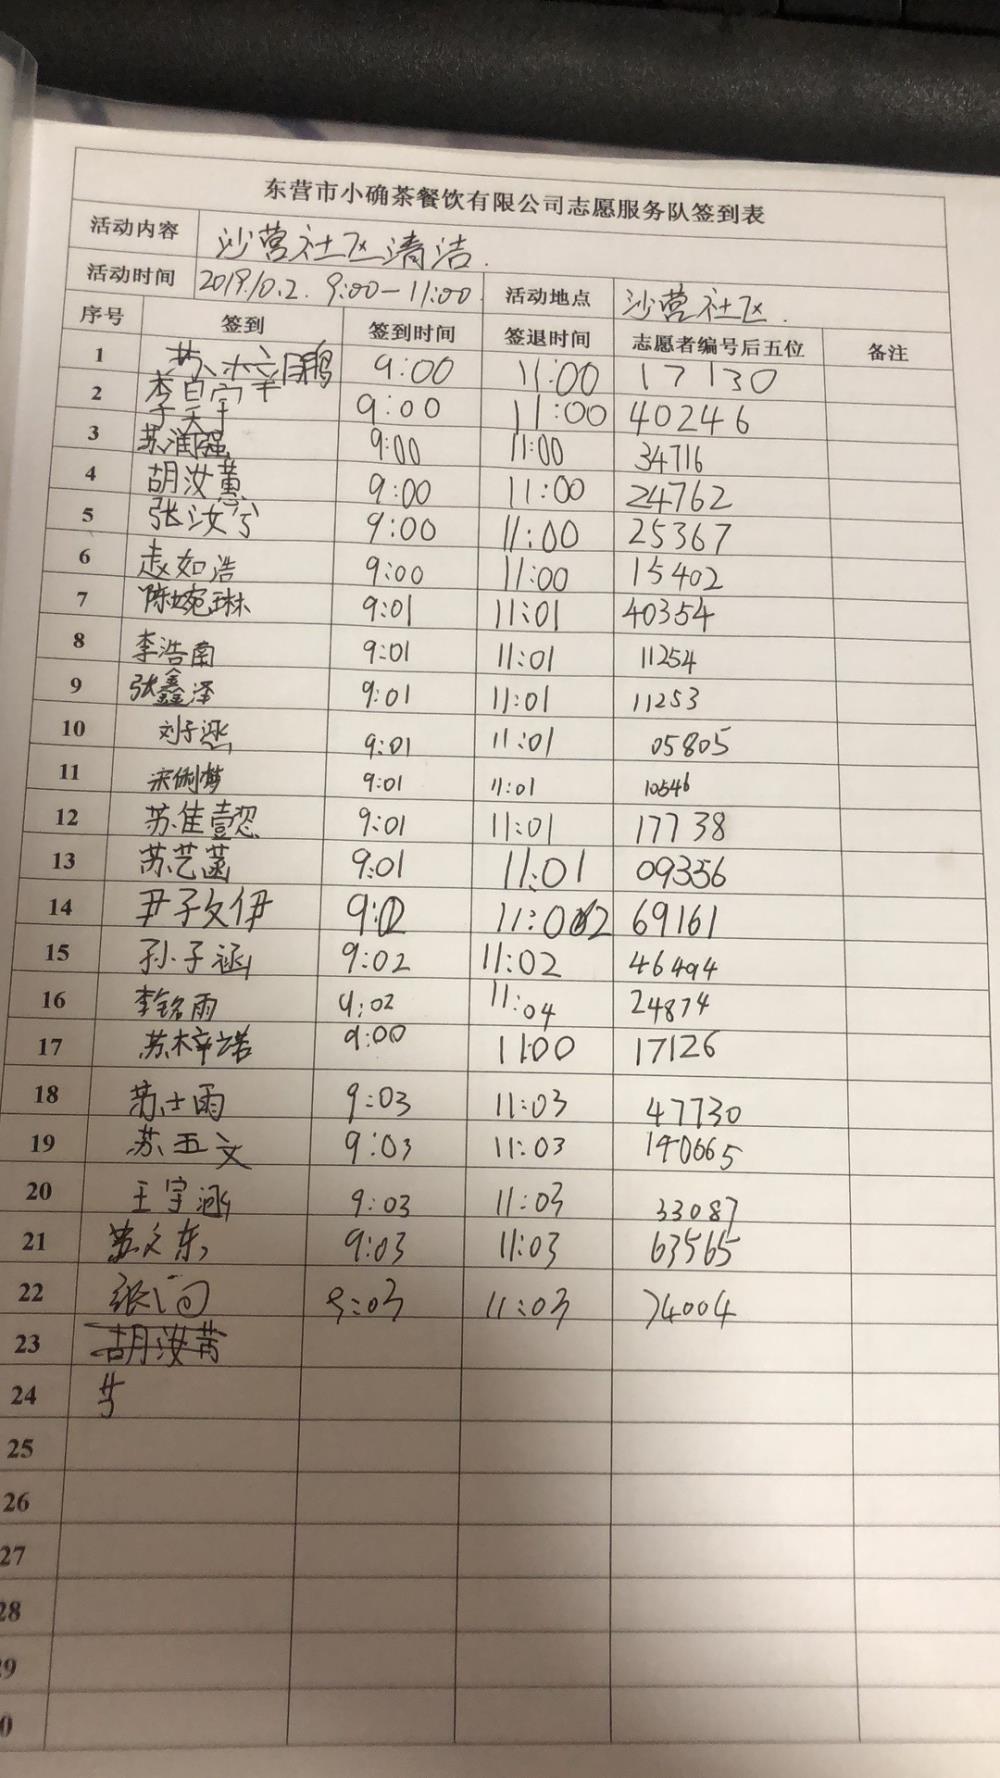 东营市小确茶餐饮有限公司志愿服务队签到表
活动内容 沙营社区清洁.
活动时间 2019.10.2. 9:00-11:00 活动地点 沙营社区.
序号 签到 签到时间 签退时间 志愿者编号后五位 备注
1 9:00 11:00 17130
2 9:00 11:00 40246
3 苏润强 9:00 11:00 34716
4 胡汝蕙 9:00 11:00 24762
5 张汝兮 9:00 11:00 25367
6 赵如浩 9:00 11:00 15402
7 陈婉琳 9:01 11:01 40354
8 李浩南 9:01 11:01 11254
9 张鑫泽 9:01 11:01 11253
10 刘子涵 9:01 11:01 05805
11 宋俐梦 9:01 11:01 10546
12 苏佳懿 9:01 11:01 17738
13 苏艺菡 9:01 11:01 09356
14 尹子文伊 9:02 11:02 69161
15 孙子涵 9:02 11:02 46494
16 李铭雨 9:02 11:04 24874
17 苏梓诺 9:00 11:00 17126
18 苏士雨 9:03 11:03 47730
19 苏玉文 9:03 11:03 190665
20 王宇涵 9:03 11:03 33087
21 苏文东 9:03 11:03 63565
22 9:03 11:03 74004
23 胡汝芳
24
25
26
27
28
29